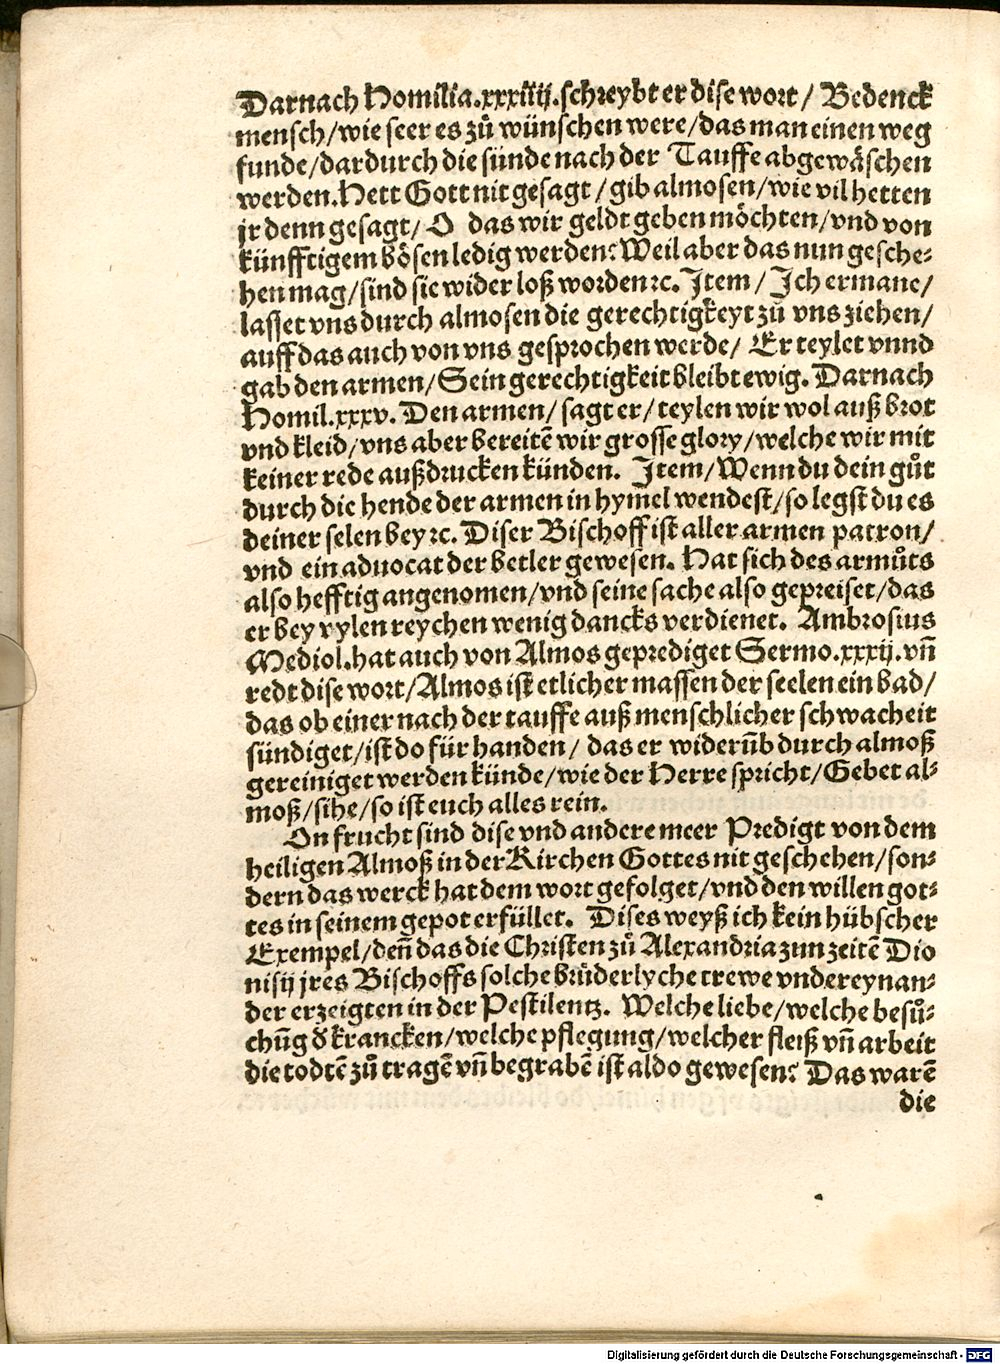 Darnach Homilia.xxxiiij.schreybt er dise wort/ Bedenck
mensch/wie seer es zů wünschen were/das man einen weg
funde/dardurch die sünde nach der Tauffe abgewäschen
werden.Hett Gott nit gesagt/gib almosen/wie vil hetten
jr denn gesagt/ O das wir geldt geben möchten/vnd von
künfftigem bösen ledig werden? Weil aber das nun gesche⸗
hen mag/sind sie wider loß worden ꝛc. Item/ Ich ermane/
lasset vns durch almosen die gerechtigkeyt zů vns ziehen/
auff das auch von vns gesprochen werde/ Er teylet vnnd
gab den armen/Sein gerechtigkeit bleibt ewig. Darnach
Homil.xxxv. Den armen/ sagt er/teylen wir wol auß brot
vnd kleid/vns aber bereitē wir grosse glory/welche wir mit
keiner rede außdrucken künden. Item/Wenn du dein gůt
durch die hende der armen in hymel wendest/so legst du es
deiner selen bey ꝛc. Diser Bischoff ist aller armen patron/
vnd ein aduocat der betler gewesen. Hat sich des armůts
also hefftig angenomen/vnd seine sache also gepreiset/das
er bey vylen reychen wenig dancks verdienet. Ambrosius
Mediol.hat auch von Almos geprediget Sermo.xxxij.vñ
redt dise wort/Almos ist etlicher massen der seelen ein bad/
das ob einer nach der tauffe auß menschlicher schwacheit
sündiget/ist do für handen/ das er widerūb durch almoß
gereiniget werden künde/wie der Herre spricht/Gebet al⸗
moß/sihe/so ist euch alles rein.
On frucht sind dise vnd andere meer Predigt von dem
heiligen Almoß in der Kirchen Gottes nit geschehen/son⸗
dern das werck hat dem wort gefolget/vnd den willen got⸗
tes in seinem gepot erfüllet. Dises weyß ich kein hübscher
Exempel/deñ das die Christen zů Alexandria zun zeitē Dio
nisij jres Bischoffs solche brůderlyche trewe vndereynan⸗
der erzeigten in der Pestilentz. Welche liebe/welche besů⸗
chūg ď krancken/welche pflegung/welcher fleiß vñ arbeit
die todtē zů tragē vñ begrabē ist aldo gewesen? Das warē
die
Digitalisierung gefördert durch die Deutsche Forschungsgemeinschaft - DFG